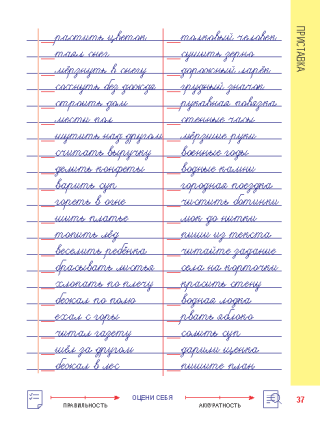 ПРИСТАВКА
__растить цветок
__таял снег
__мёрзнуть в снегу
__сохнуть без дождя
__строить дом
__мести пол
__шутить над другом
__считать выручку
__делить конфеты
__варить суп
__гореть в огне
__шить платье
__топить лёд
__веселить ребёнка
__брасывать листья
__хлопать по плечу
__бежал по полю
__ехал с горы
__читал газету
__шёл за другом
__бежал в лес
__толковый человек
__сушить зерно
__дорожный ларёк
__грудный значок
__рукавная повязка
__стенные часы
__мёрзшие руки
__военные годы
__водные камни
__городная поездка
__чистить ботинки
__мок до нитки
__пиши из текста
__читайте задание
__села на корточки
__красить стену
__водная лодка
__рвать яблоко
__солить суп
__дарили щенка
__пишите план
ПРАВИЛЬНОСТЬ
ОЦЕНИ СЕБЯ
АККУРАТНОСТЬ
37